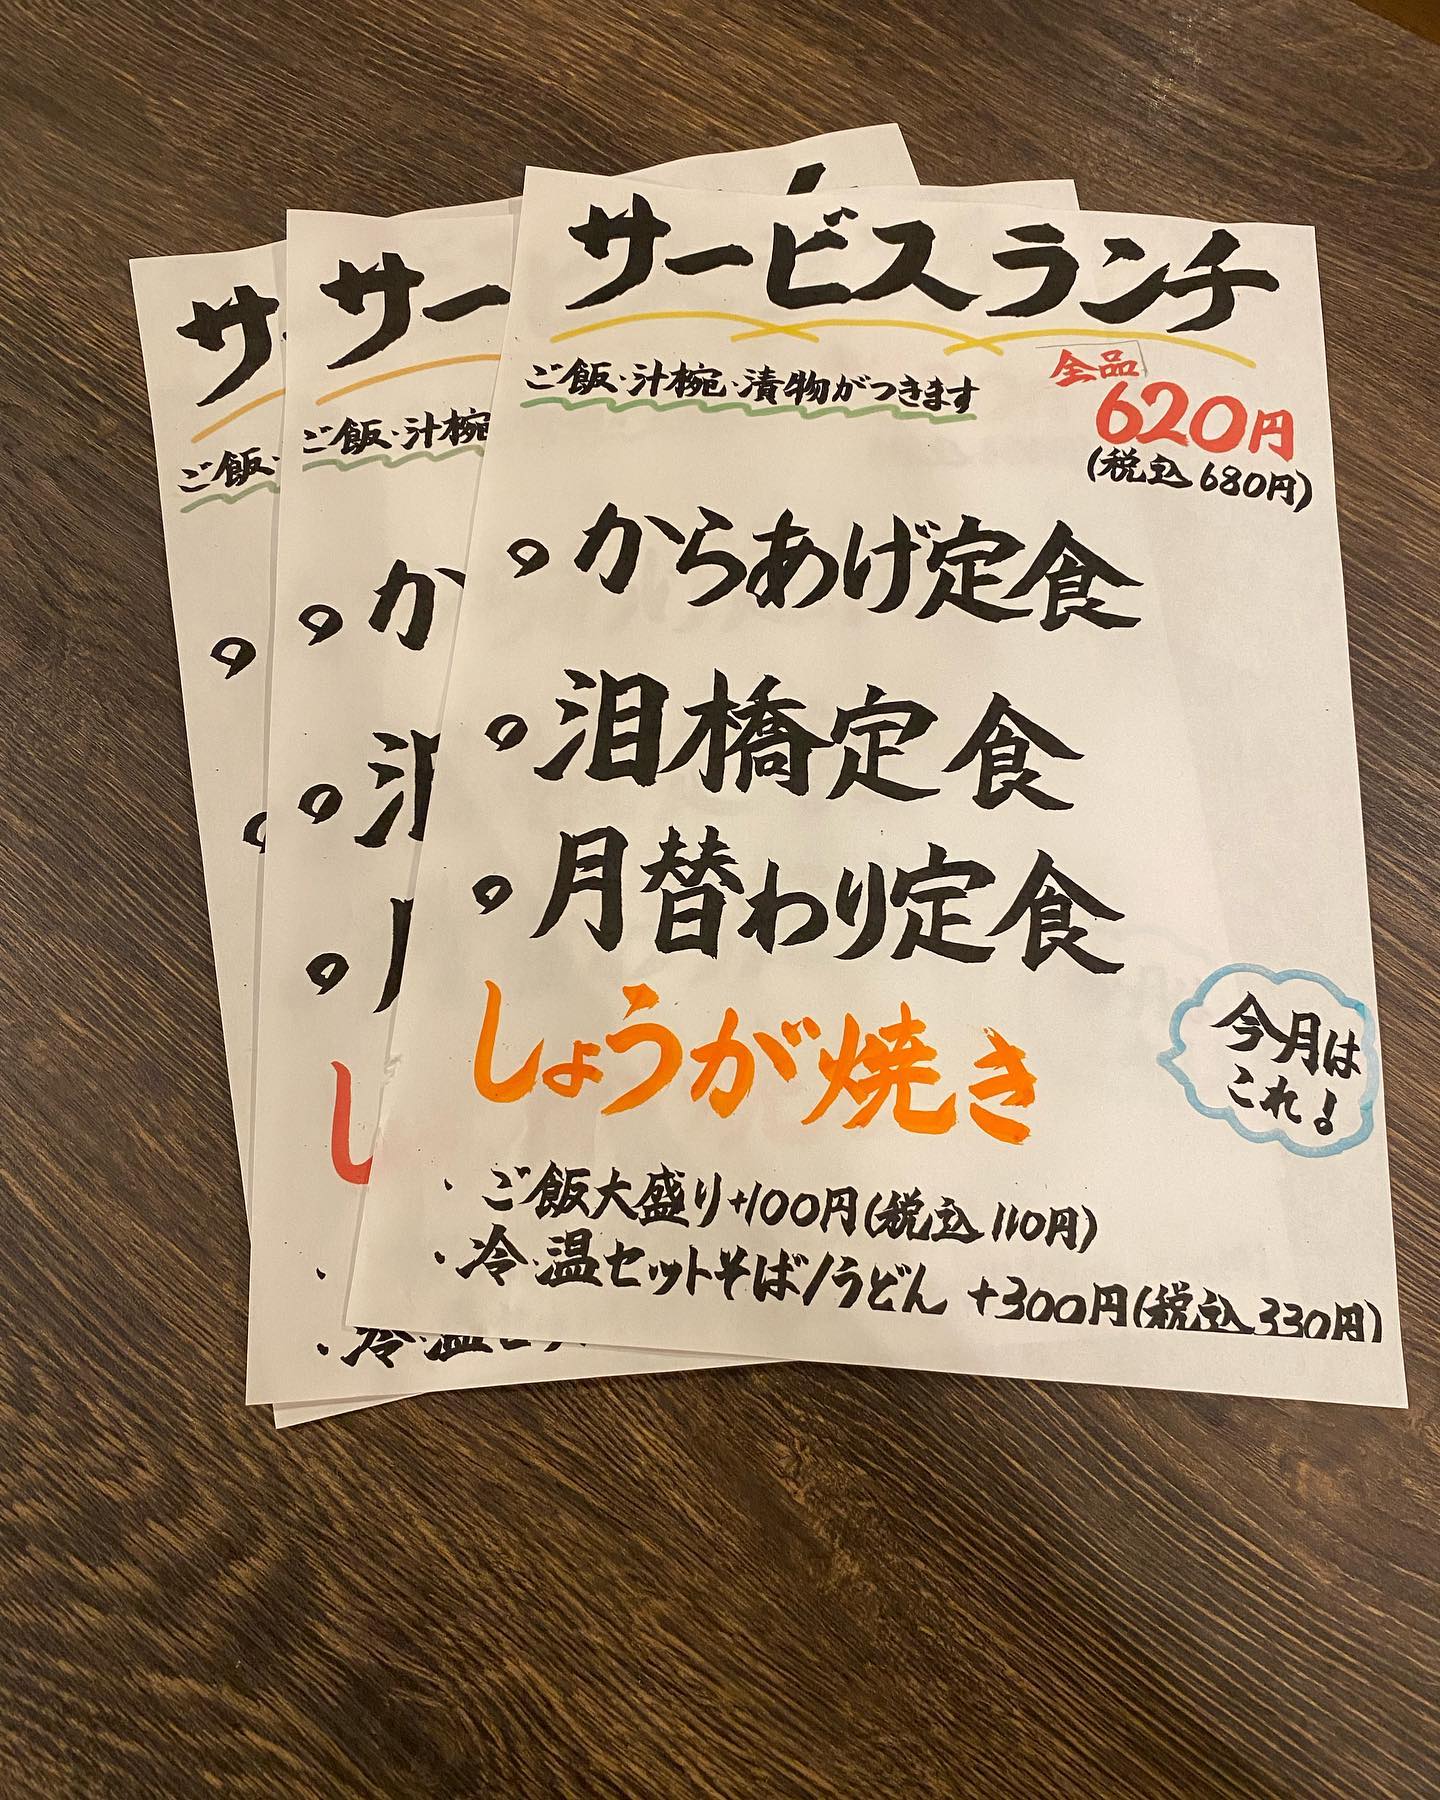 サービスランチ
ご飯・汁椀・漬物がつきます
全品
620円
(税込680円)
からあげ定食
泪橋定食
月替わり定食
しょうが焼き
今月は
これ!
・ご飯大盛り+100円(税込110円)
・冷・温セットそば/うどん +300円(税込330円)
サー
ご飯・汁椀
か
泪
し
・冷・温セ
サ
ご飯・